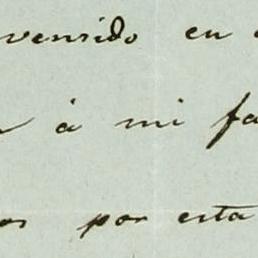 venrido en
à mi fa
os por esta